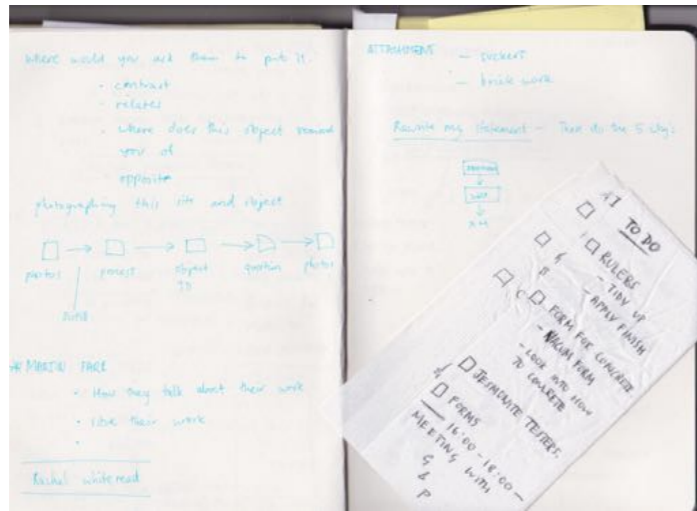 where would you ask them to put it.
· contrast
· relates
· where does this object remind
you of
opposite
photographing this site and object
photos
process
object
3D
question
photos
* MARTIN PARR
· How they talk about their work
· love their work
·
Rachel whiteread
ATTACHMENT — suckers
— brick work
Rewrite my statement — Then do the 5 why's
TO DO
RULERS
- TIDY UP
- APPLY FINISH
FORM FOR CONCRETE
- VACUUM FORM
- LOOK INTO HOW
TO CONCRETE
JESMONITE TESTERS.
FORMS
16:00 - 18:00 -
MEETING WITH
G
&
P